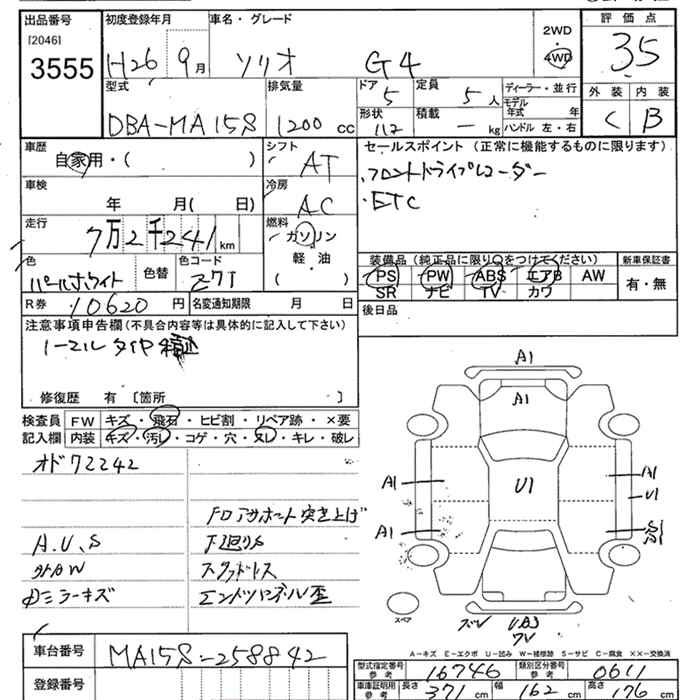 出品番号
[2046]
3555
初度登録年月
H26 9月
車名・グレード
ソリオ G4
2WD
4WD
評価点
3.5
外装 内装
C B
型式
DBA-MA15S
排気量
1200 cc
ドア 5
形状
定員 5 人
積載 — kg
ディーラー・並行
モデル年式 年
ハンドル 左・右
車歴
自家用・( )
シフト
AT
セールスポイント (正常に機能するものに限ります)
・フロントドライブレコーダー
・ETC
車検
年 月( 日)
冷房
AC
走行
7万2千241km
燃料
ガソリン
軽油
( )
色
パールホワイト
色替
色コード
Z7T
装備品 (純正品に限り○をつけてください)
PS PW ABS エアB AW
SR ナビ TV カワ
新車保証書
有・無
R券 10620 円
名変通知期限 月 日
後日品
注意事項申告欄 (不具合内容等は具体的に記入して下さい)
ノーマルタイヤ積込
修復歴 有 〔箇所 〕
検査員記入欄
FW キズ・飛石・ヒビ割・リペア跡・×要
内装 キズ・汚レ・コゲ・穴・ヌレ・キレ・破レ
オド72242
Fロアサポート突き上げ
A.U.S
下廻りS
外AW
スタッドレス
内ミラーキズ
エンドパネル歪
A1
A1
A1
A1
U1
U1
A1
S1
スペア
A-キズ E-エクボ U-凹み W-補修跡 S-サビ C-腐食 ××-交換済
車台番号
MA15S-258842
登録番号
型式指定番号 参考
16746
類別区分番号 参考
0611
車庫証明用 参考
長さ 371 cm
幅 162 cm
高さ 176 cm